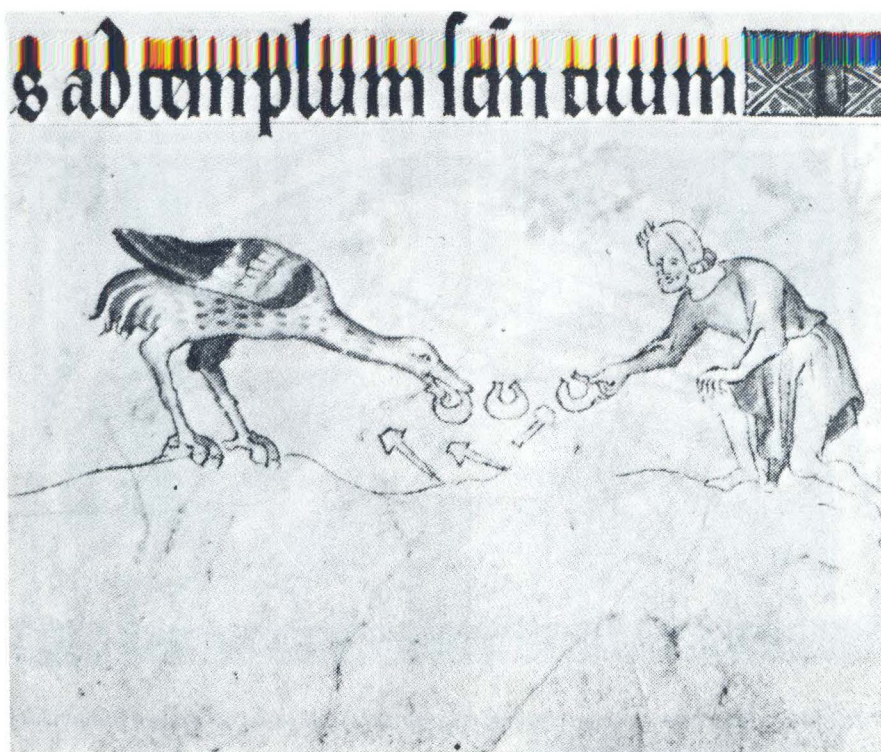 s ad templum ſcm tuum